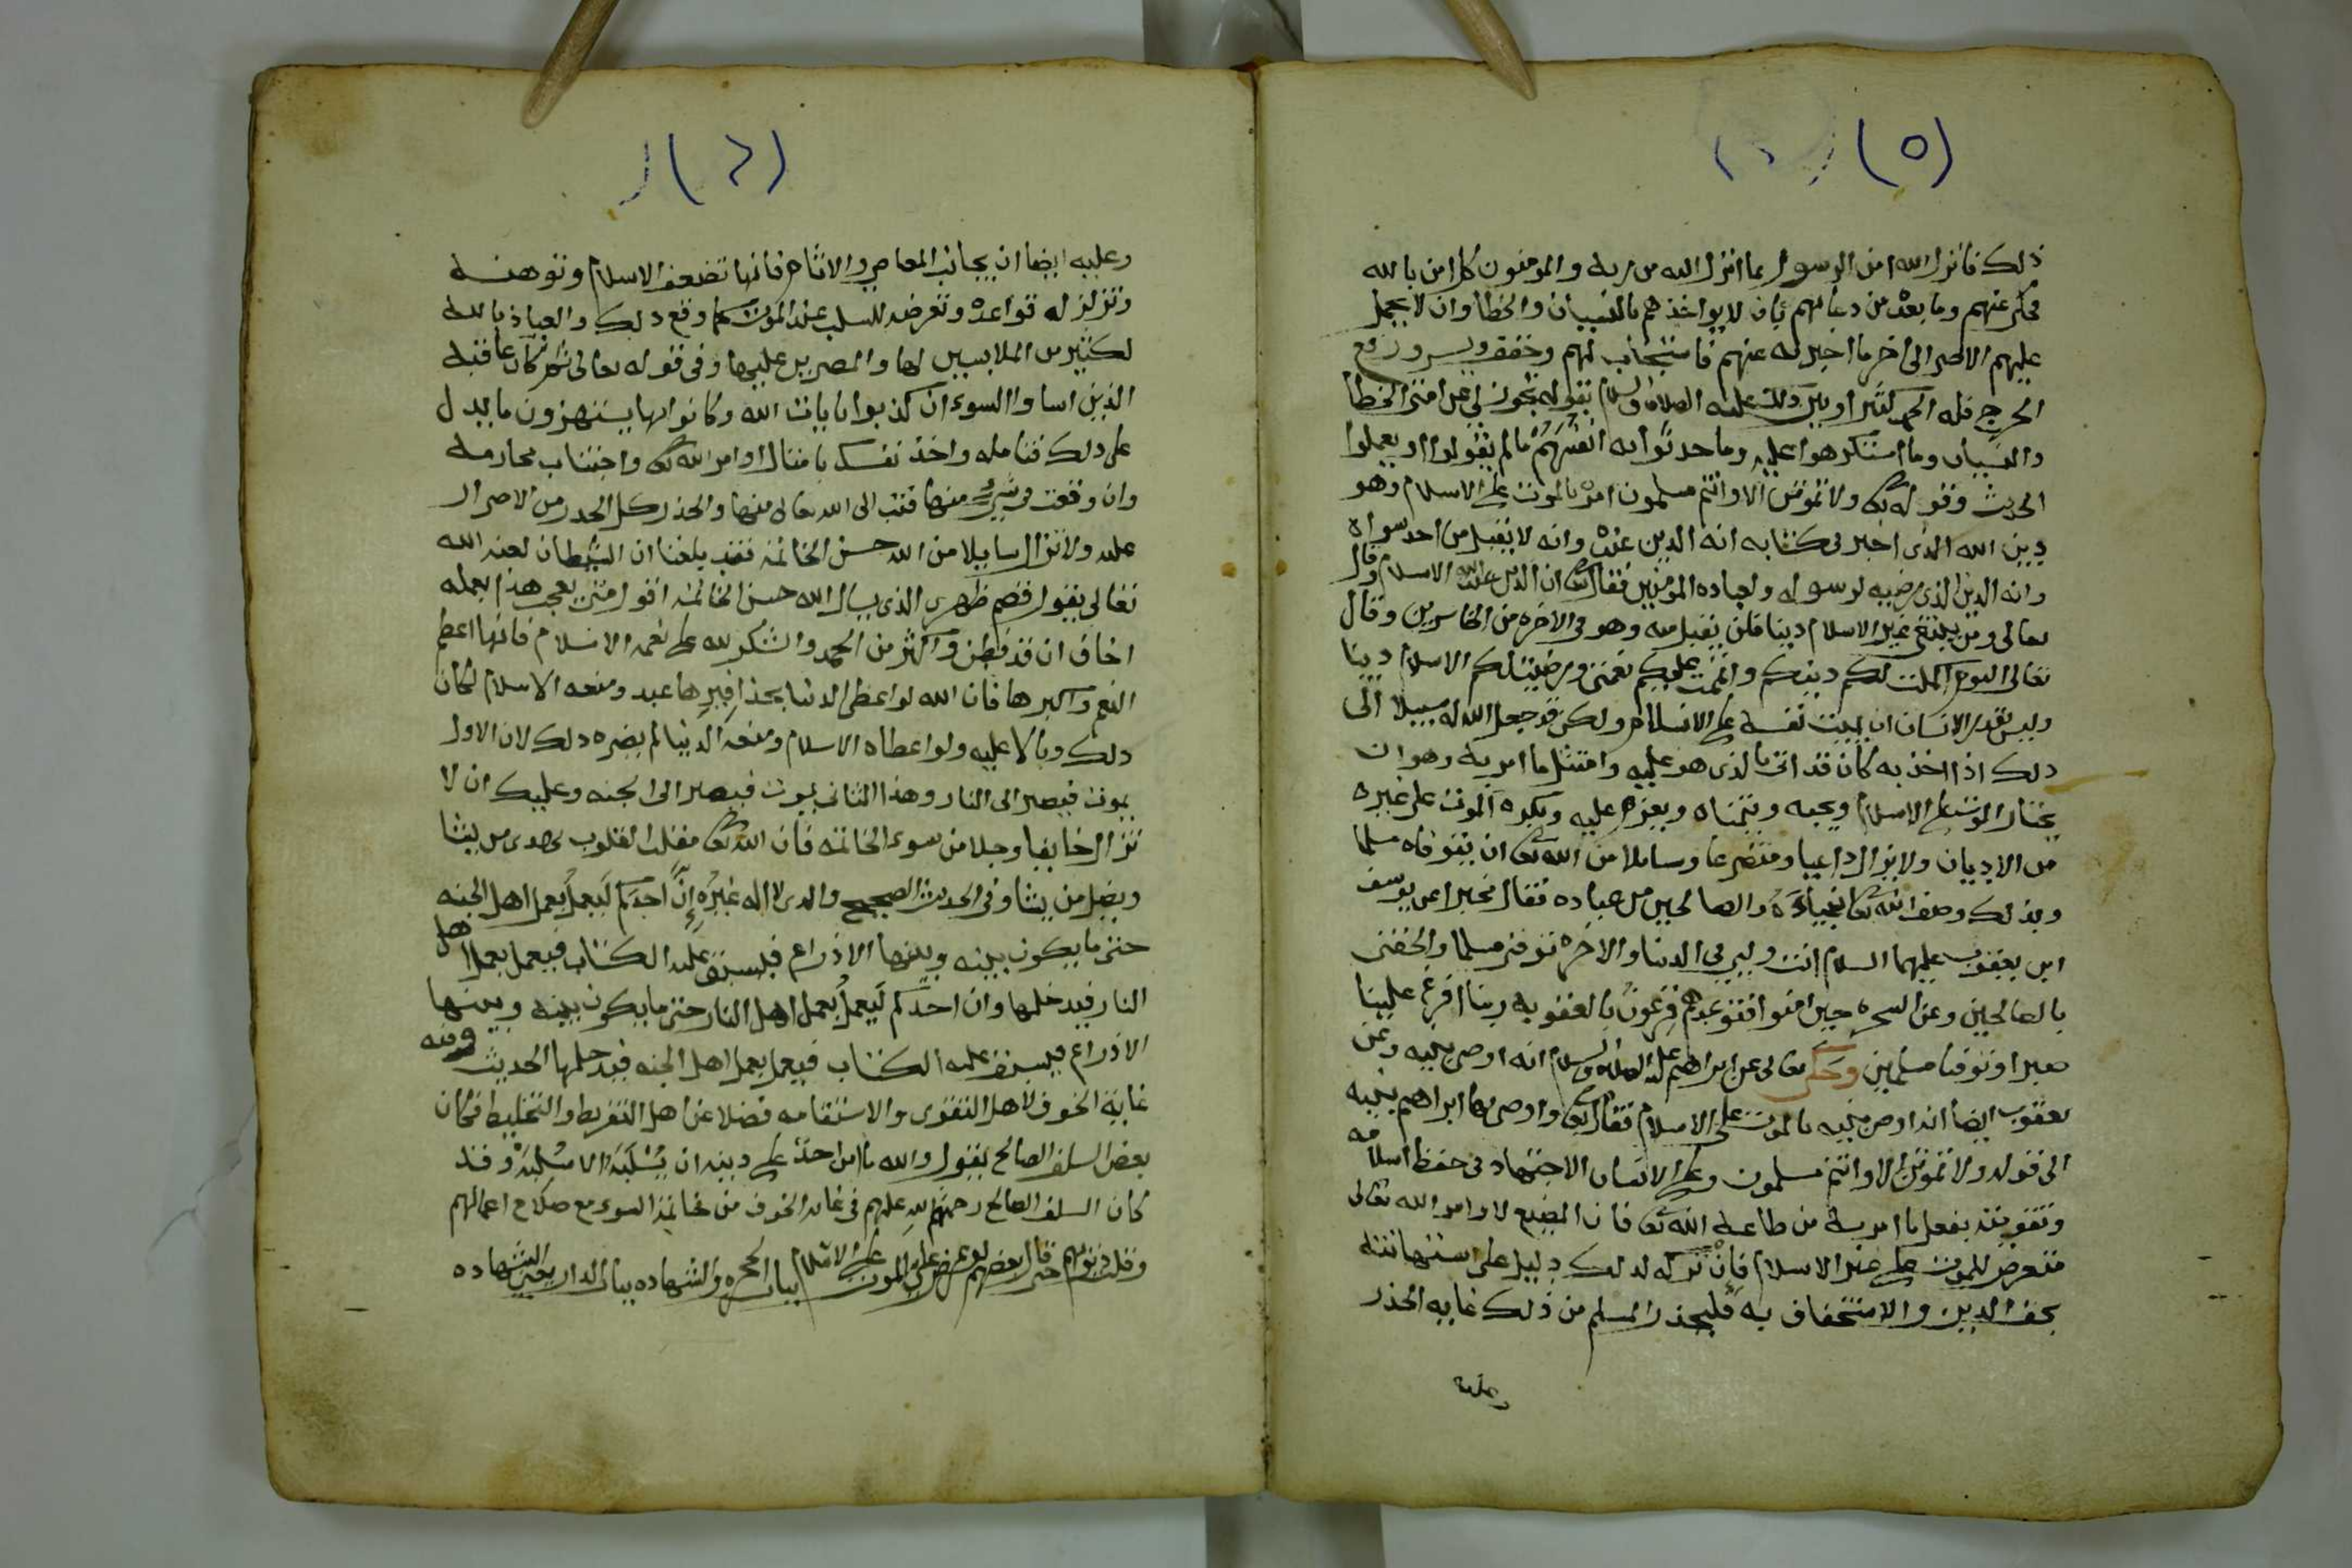 (٥)
ذلك فانزل الله امن الرسول بما انزل اليه من ربه والمومنون كل امن بالله
فحكى عنهم وما بعده من دعايهم بان لا يواخذهم بالنسيان والخطا وان لا يحمل
عليهم الاصر الى اخر ما اخبر به عنهم فاستجاب لهم وخفف ويسر ورفع
الحرج فله الحمد كثيرا وبين ذلك عليه الصلاة والسلام بقوله تجوز لي عن امتي الخطا
والنسيان وما استكرهوا عليه وما حدثوا به انفسهم ما لم يقولوا او يعملوا
الحديث وقوله تعالى ولا تموتن الا وانتم مسلمون امر بالموت على الاسلام وهو
دين الله الذي اخبر في كتابه انه الدين عنده وانه لا يقبل من احد سواه
وانه الدين الذي رضيه لرسوله ولعباده المومنين فقال تعالى ان الدين عند الله الاسلام وقال
تعالى ومن يبتغ غير الاسلام دينا فلن يقبل منه وهو في الاخرة من الخاسرين وقال
تعالى اليوم اكملت لكم دينكم واتممت عليكم نعمتي ورضيت لكم الاسلام دينا
وليس بقدر الانسان ان يميت نفسه على الاسلام ولكن قد جعل الله له سبيلا الى
ذلك اذا اخذ به كان قد اتى بالذي هو عليه وامتثل ما امر به وهو ان
يختار الموت على الاسلام ويحبه ويتمناه ويعزم عليه ويكره الموت على غيره
من الاديان ولا يزال داعيا ومتضرعا وسايلا من الله تعالى ان يتوفاه مسلما
وبذلك وصف الله تعالى انبياءه والصالحين من عباده فقال مخبرا عن يوسف
ابن يعقوب عليهما السلام انت وليي في الدنيا والاخره توفني مسلما والحقني
بالصالحين وعن السحره حين امنوا فتوعدهم فرعون بالعقوبه ربنا افرغ علينا
صبرا وتوفنا مسلمين وحكى تعالى عن ابراهيم عليه الصلاة والسلام انه اوصى بنيه وعن
يعقوب ايضا انه اوصى بنيه بالموت على الاسلام فقال تعالى واوصى بها ابراهيم بنيه
الى قوله ولا تموتن الا وانتم مسلمون وعلى الانسان الاجتهاد في حفظ اسلامه
وتقويته بفعل ما امر به من طاعة الله تعالى فان المضيع لاوامر الله تعالى
متعرض للموت على غير الاسلام فان تركه لذلك دليل على استهانته
بحق الدين والاستخفاف به فليحذر المسلم من ذلك غايه الحذر
وعليه
(٦)
وعليه ايضا ان يجانب المعاصي والاثام فانها تضعف الاسلام وتوهنه
وتزلزله قواعده وتعرضه للسلب عند الموت كما وقع ذلك والعياذ بالله
لكثير من الملابسين لها والمصرين عليها وفي قوله تعالى ثم كان عاقبة
الذين اساوا السوء ان كذبوا بايات الله وكانوا بها يستهزون ما يدل
على ذلك فتامله واخذ نفسك بامتثال اوامر الله تعالى واجتناب محارمه
وان وقعت في شيء منها فتب الى الله تعالى منها والحذر كل الحذر من الاصرار
عليه ولا تزال سايلا من الله حسن الخاتمة فقد بلغنا ان الشيطان لعنه الله
تعالى يقول قصم ظهري الذي يسال الله حسن الخاتمة اقول متى يعجب هذا بعمله
اخاف ان قد فطن واكثر من الحمد والشكر لله على نعمه الاسلام فانها اعظم
النعم واكبرها فان الله لو اعطى الدنيا بحذافيرها عبد ومنعه الاسلام لكان
ذلك وبالا عليه ولو اعطاه الاسلام ومنعه الدنيا لم يضره ذلك لان الاول
يموت فيصير الى النار وهذا الثاني يموت فيصير الى الجنه وعليك ان لا
تزال خايفا وجلا من سوء الخاتمه فان الله تعالى مقلب القلوب يهدي من يشا
ويضل من يشا وفي الحديث الصحيح والذي لا اله غيره ان احدكم ليعمل بعمل اهل الجنه
حتى ما يكون بينه وبينها الا ذراع فيسبق عليه الكتاب فيعمل بعمل اهل
النار فيدخلها وان احدكم ليعمل بعمل اهل النار حتى ما يكون بينه وبينها
الا ذراع فيسبق عليه الكتاب فيعمل بعمل اهل الجنه فيدخلها الحديث وفيه
غاية الخوف لاهل التقوى والاستقامه فضلا عن اهل التفريط والتخليط فكان
بعض السلف الصالح يقول والله ما امن احد على دينه ان يسلبه الا سلبه وقد
كان السلف الصالح رحمة الله عليهم في غاية الخوف من خاتمة السوء مع صلاح اعمالهم
وقلت ذنوبهم حتى قال بعضهم لو عرض علي الموت على الاسلام بباب الحجره والشهاده بباب الدار الشهاده